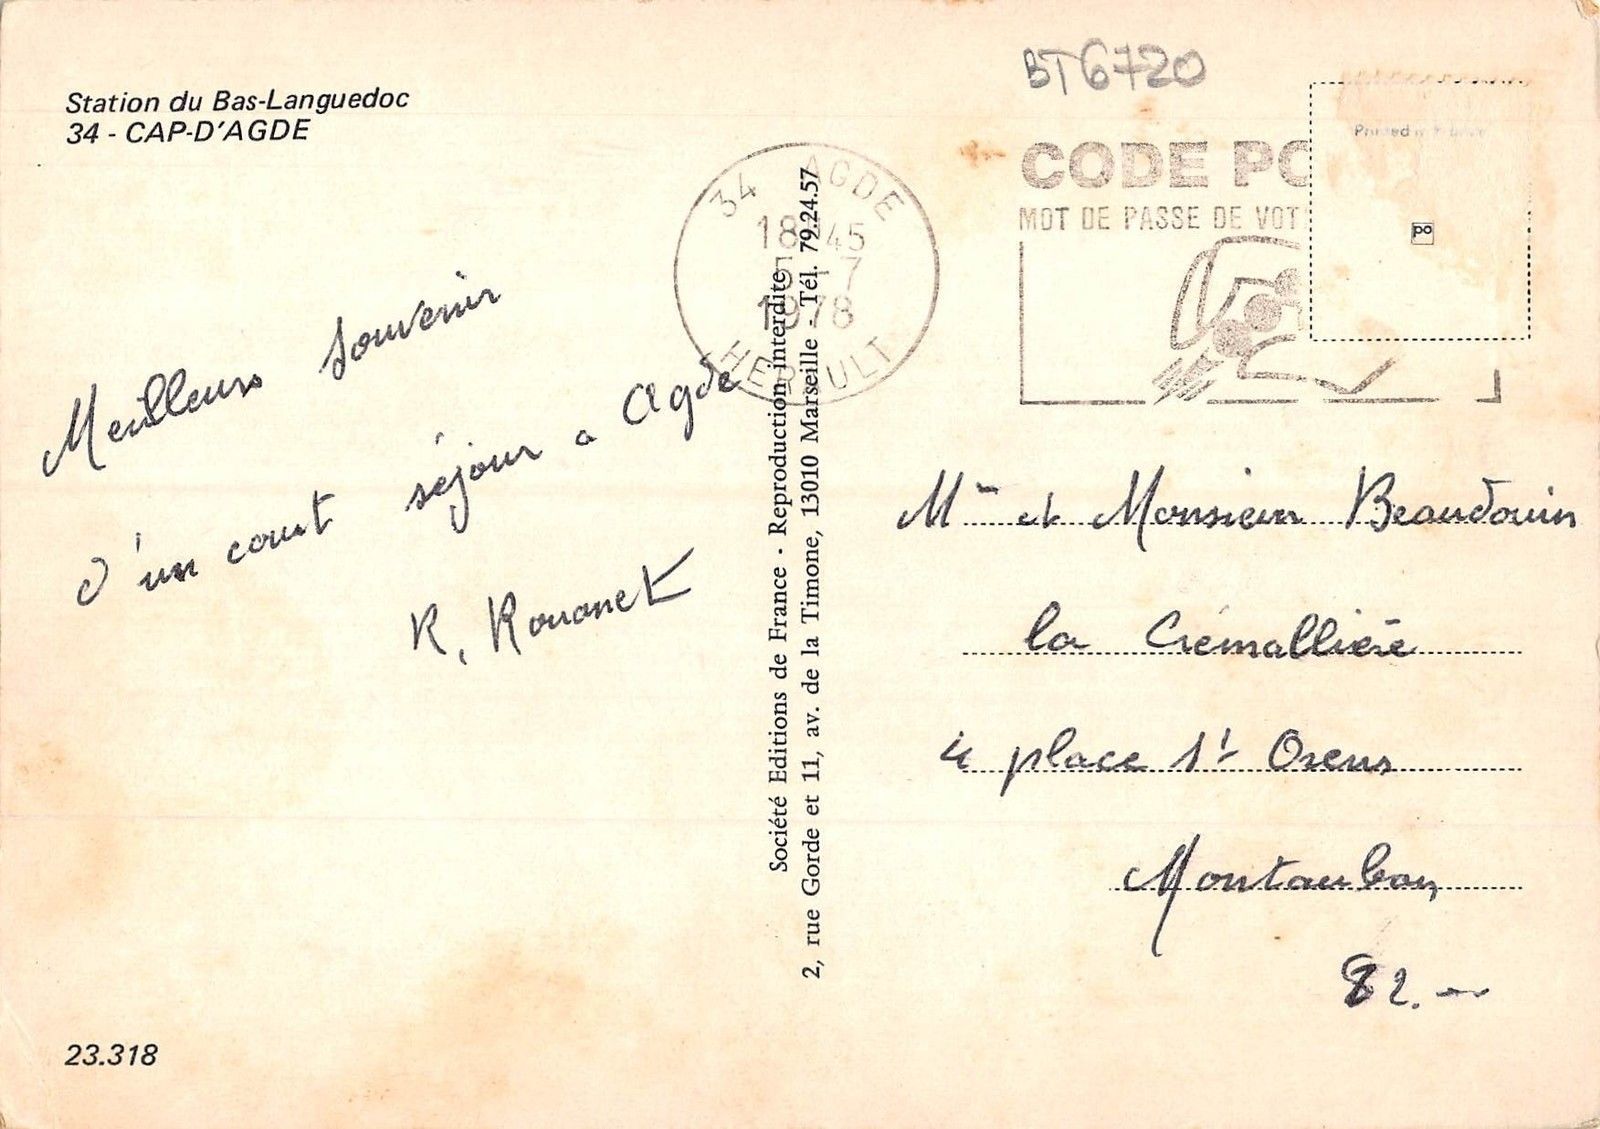 Station du Bas-Languedoc
34 - CAP-D'AGDE
BT6720
34 AGDE
18 45
-7
1978
HERAULT
CODE PO
MOT DE PASSE DE VOT
Printed in
po
Meilleurs souvenir
d'un court séjour a Agde
R. Rouanet
Société Editions de France - Reproduction interdite
2, rue Gorde et 11, av. de la Timone, 13010 Marseille - Tél. 79.24.57
Mme et Monsieur Beaudouin
la Crémallière
4 place St Orens
Montauban
82.
23.318